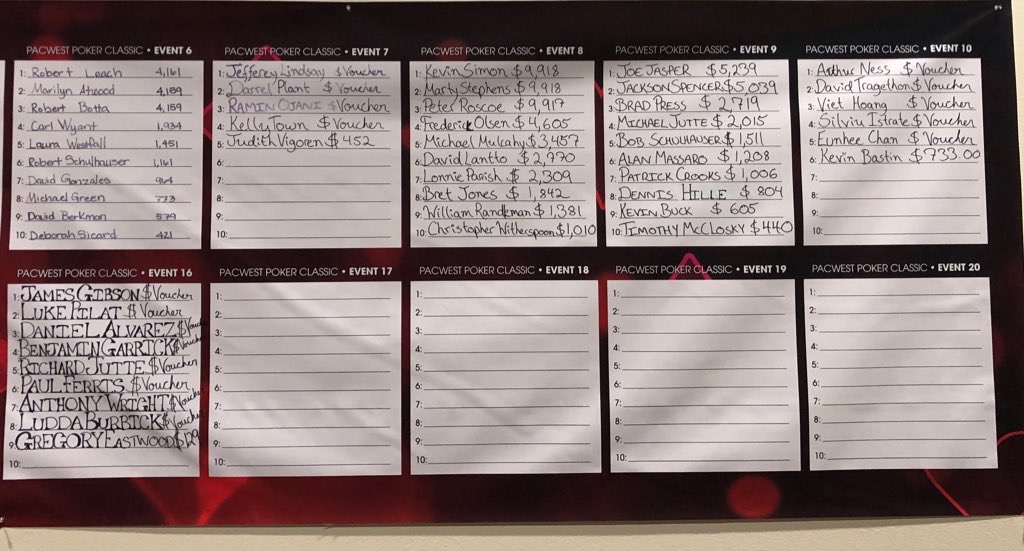 PACWEST POKER CLASSIC • EVENT 6
1: Robert Leach 4,161
2: Marilyn Atwood 4,159
3: Robert Botta 4,159
4: Carl Wyant 1,934
5: Laura Westfall 1,451
6: Robert Schulhauser 1,161
7: David Gonzales 964
8: Michael Green 773
9: David Berkman 579
10: Deborah Sicard 421
PACWEST POKER CLASSIC • EVENT 7
1: Jefferey Lindsay $ Voucher
2: Darrel Plant $ Voucher
3: RAMIN OJANI $ Voucher
4: Kelly Town $ Voucher
5: Judith Vigoren $ 452
6:
7:
8:
9:
10:
PACWEST POKER CLASSIC • EVENT 8
1: Kevin Simon $ 9,918
2: Marty Stephens $ 9,918
3: Peter Roscoe $ 9,917
4: Frederick Olsen $ 4,605
5: Michael Mulcahy $ 3,457
6: David Lantto $ 2,770
7: Lonnie Parish $ 2,309
8: Bret Jones $ 1,842
9: William Randleman $ 1,381
10: Christopher Witherspoon $1,010
PACWEST POKER CLASSIC • EVENT 9
1: JOE JASPER $5,239
2: JACKSON SPENCER $5,039
3: BRAD PRESS $ 2,719
4: MICHAEL JUTTE $ 2,015
5: BOB SCHULHAUSER $1,511
6: ALAN MASSARO $ 1,208
7: PATRICK CROOKS $ 1,006
8: DENNIS HILLE $ 804
9: KEVIN BUCK $ 605
10: TIMOTHY McCLOSKY $440
PACWEST POKER CLASSIC • EVENT 10
1: Arthur Ness $ Voucher
2: David Tragethon $ Voucher
3: Viet Hoang $ Voucher
4: Silviu Istrate $ Voucher
5: Eunhee Chan $ Voucher
6: Kevin Bastin $733.00
7:
8:
9:
10:
PACWEST POKER CLASSIC • EVENT 16
1: JAMES GIBSON $ Voucher
2: LUKE PILAT $ Voucher
3: DANIEL ALVAREZ $
4: BENJAMIN GARRICK $
5: RICHARD JUTTE $ Voucher
6: PAUL FERRIS $ Voucher
7: ANTHONY WRIGHT $
8: LUDDA BURRICK $
9: GREGORY EASTWOOD $
10:
PACWEST POKER CLASSIC • EVENT 17
1:
2:
3:
4:
5:
6:
7:
8:
9:
10:
PACWEST POKER CLASSIC • EVENT 18
1:
2:
3:
4:
5:
6:
7:
8:
9:
10:
PACWEST POKER CLASSIC • EVENT 19
1:
2:
3:
4:
5:
6:
7:
8:
9:
10:
PACWEST POKER CLASSIC • EVENT 20
1:
2:
3:
4:
5:
6:
7:
8:
9:
10: